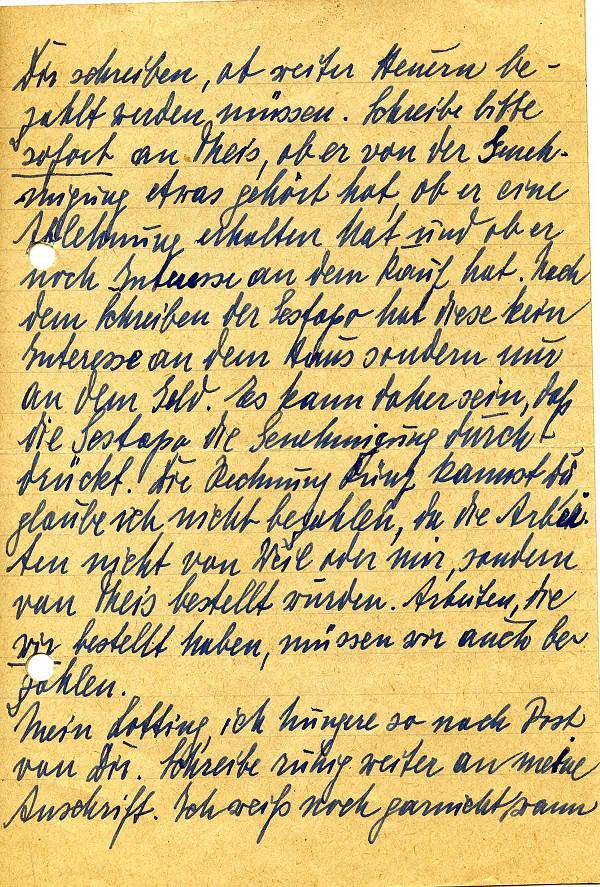 Dir schreiben, ob weiter Steuern be-
zahlt werden müssen. Schreibe bitte
sofort an Theis, ob er von der Geneh-
migung etwas gehört hat, ob er eine
Ablehnung erhalten hat und ob er
noch Interesse an dem Kauf hat. Nach
dem Schreiben der Gestapo hat diese kein
Interesse an dem Haus sondern nur
an dem Geld. Es kann daher sein, daß
die Gestapo die Genehmigung durch-
drückt. Die Rechnung Kunz kannst Du
glaube ich nicht bezahlen, da die Arbei-
ten nicht von Weil oder mir, sondern
von Theis bestellt wurden. Arbeiten, die
wir bestellt haben, müssen wir auch be-
zahlen.
Mein Lotting, ich hungere so nach Post
von Dir. Schreibe ruhig weiter an meine
Anschrift. Ich weiß noch garnicht wann